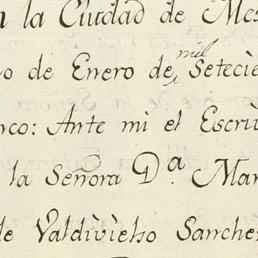 n la Ciudad de Mes
o de Enero de mil Setecie
rco: Ante mi el Escriv
la Señora D.ª Mar
de Valdivieho Sanche